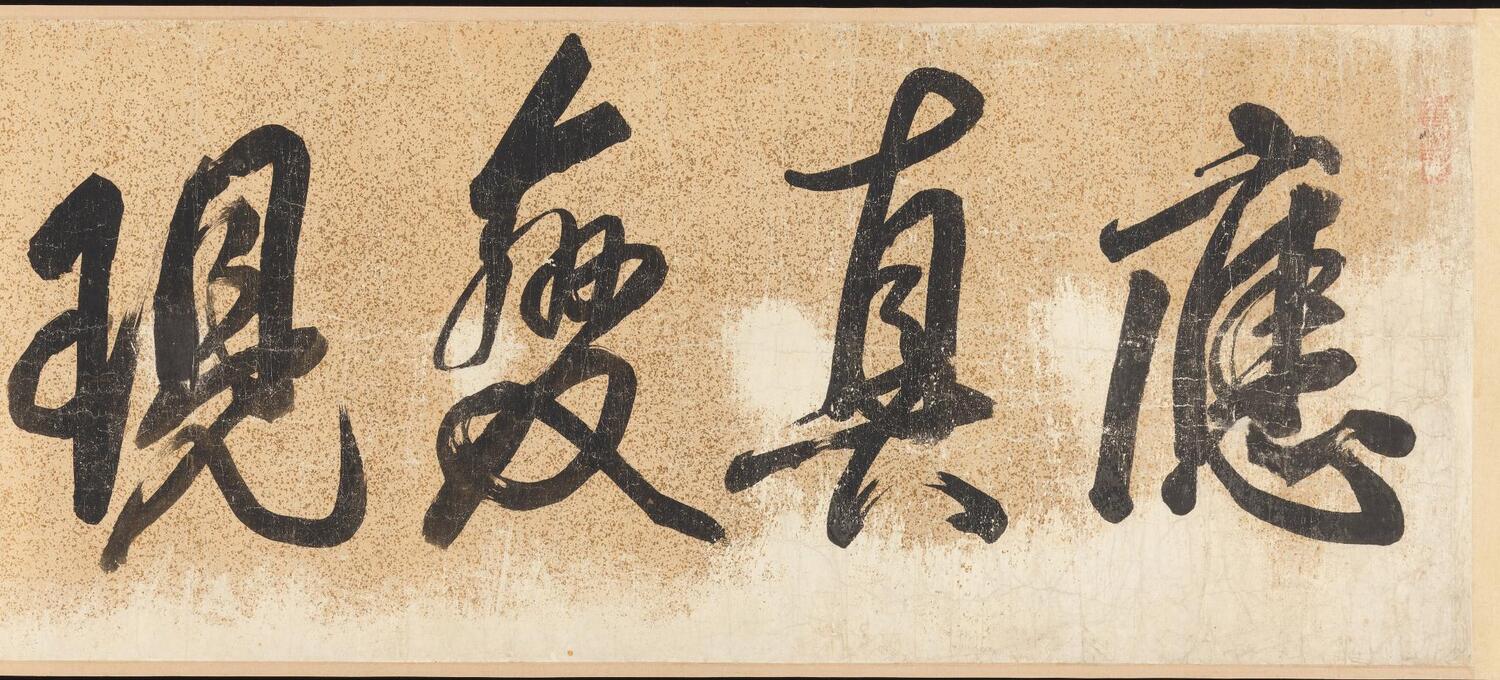 應真變現